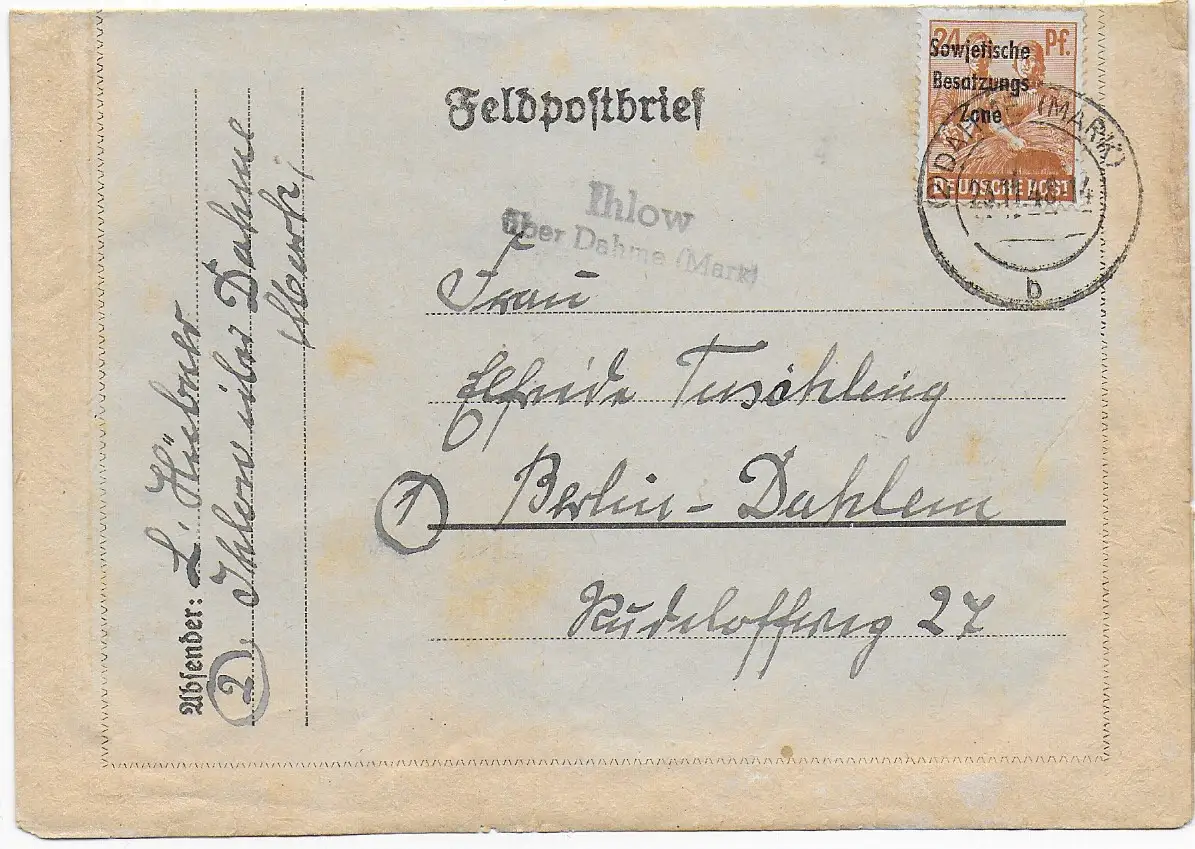 24 Pf.
Sowjetische
Besatzungs
Zone
DEUTSCHE POST
DAHME (MARK)
23.11.48
b
Feldpostbrief
Ihlow
über Dahme (Mark)
Frau
Elfriede Tuschling
① Berlin-Dahlem
Rudeloffweg 27
Absender: L. Hübner
② Ihlow über Dahme
(Mark)